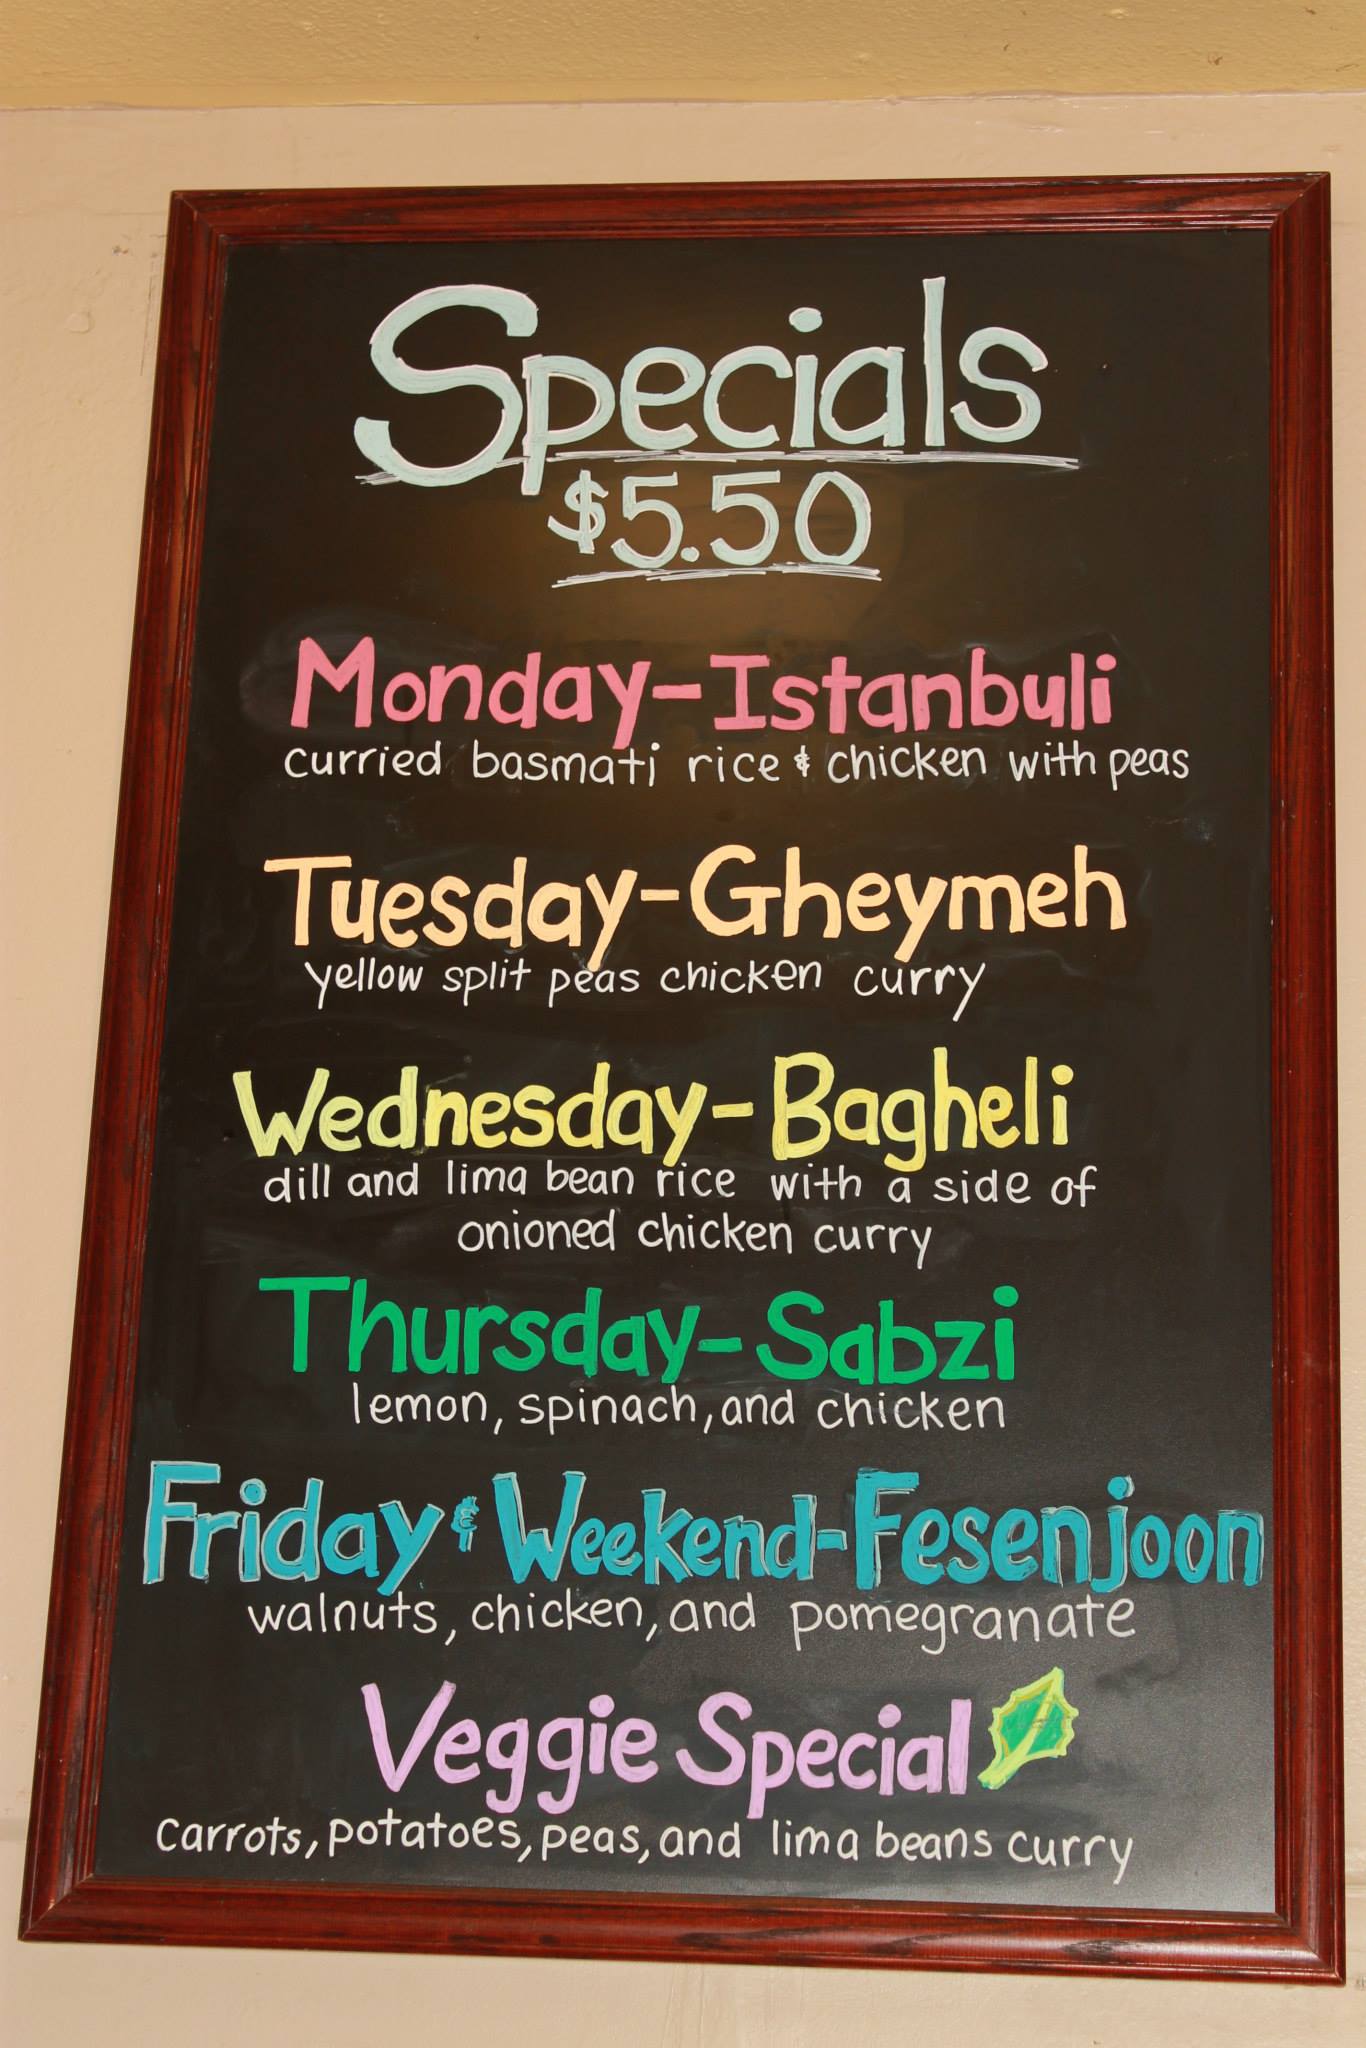 Specials
$5.50
Monday-Istanbuli
curried basmati rice & chicken with peas
Tuesday-Gheymeh
yellow split peas chicken curry
Wednesday-Bagheli
dill and lima bean rice with a side of
onioned chicken curry
Thursday-Sabzi
lemon, spinach, and chicken
Friday & Weekend-Fesenjoon
walnuts, chicken, and pomegranate
Veggie Special
carrots, potatoes, peas, and lima beans curry